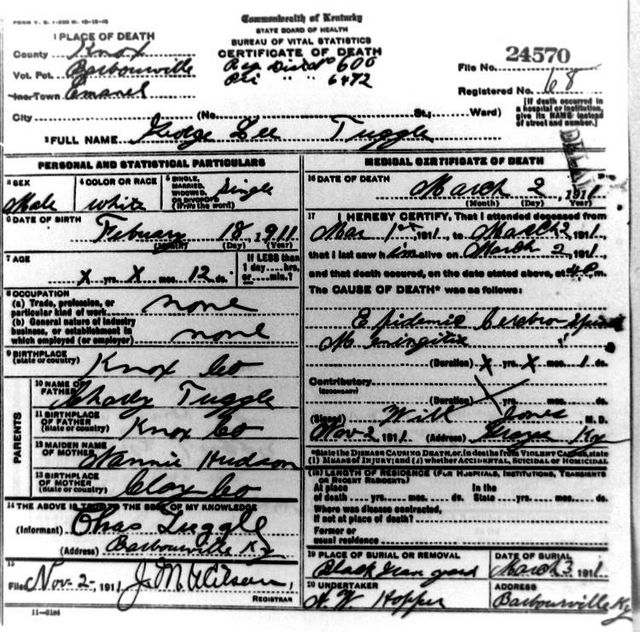 FORM V. S. 1-200 M. 10-15-10
Commonwealth of Kentucky
STATE BOARD OF HEALTH
BUREAU OF VITAL STATISTICS
CERTIFICATE OF DEATH
1 PLACE OF DEATH
County Knox
Vot. Pct. Barbourville
Inc. Town Emanel
City (No. St.; Ward)
Reg Dist No 600
Pri " " 6472
File No. 24570
Registered No. 68
[If death occurred in a hospital or institution, give its NAME instead of street and number.]
DELAYED
2 FULL NAME Gedge Lee Tuggle
PERSONAL AND STATISTICAL PARTICULARS
3 SEX Male
4 COLOR OR RACE white
5 SINGLE, MARRIED, WIDOWED, OR DIVORCED (Write the word) Single
6 DATE OF BIRTH
February 18, 1911
(Month) (Day) (Year)
7 AGE
X yrs. X mos. 12 ds.
If LESS than 1 day....hrs. or....min.?
8 OCCUPATION
(a) Trade, profession, or particular kind of work none
(b) General nature of industry business, or establishment in which employed (or employer) none
9 BIRTHPLACE (State or country) Knox Co
PARENTS
10 NAME OF FATHER Charly Tuggle
11 BIRTHPLACE OF FATHER (State or country) Knox Co
12 MAIDEN NAME OF MOTHER Nannie Hudson
13 BIRTHPLACE OF MOTHER (State or country) Clay Co
14 THE ABOVE IS TRUE TO THE BEST OF MY KNOWLEDGE
(Informant) Chas Tuggle
(Address) Barbourville Ky
15
Filed Nov-2-, 1911 J. M. Wilson,
REGISTRAR
11-3184
MEDICAL CERTIFICATE OF DEATH
16 DATE OF DEATH
March 2, 1911
(Month) (Day) (Year)
17 I HEREBY CERTIFY, That I attended deceased from
Mar 1st, 1911, to March 2, 1911
that I last saw him alive on March 2, 1911
and that death occurred, on the date stated above, at 4 P.m.
The CAUSE OF DEATH* was as follows:
Epidemic Cerebro Spinal
Meningitis
(Duration) X yrs. X mos. 1 ds.
Contributory
(SECONDARY)
(Duration) yrs. mos. ds.
(Signed) Will Jones M. D.
Nov-2, 1911 (Address) Ky
*State the DISEASE CAUSING DEATH, or, in death from VIOLENT CAUSES, state (1) MEANS OF INJURY; and (2) whether ACCIDENTAL, SUICIDAL or HOMICIDAL.
18 LENGTH OF RESIDENCE (FOR HOSPITALS, INSTITUTIONS, TRANSIENTS OR RECENT RESIDENTS)
At place of death....yrs....mos....ds. In the State....yrs....mos....ds.
Where was disease contracted, if not at place of death?
Former or usual residence
19 PLACE OF BURIAL OR REMOVAL
Black yard
DATE OF BURIAL
March 3, 1911
20 UNDERTAKER
A. W. Hopper
ADDRESS
Barbourville Ky